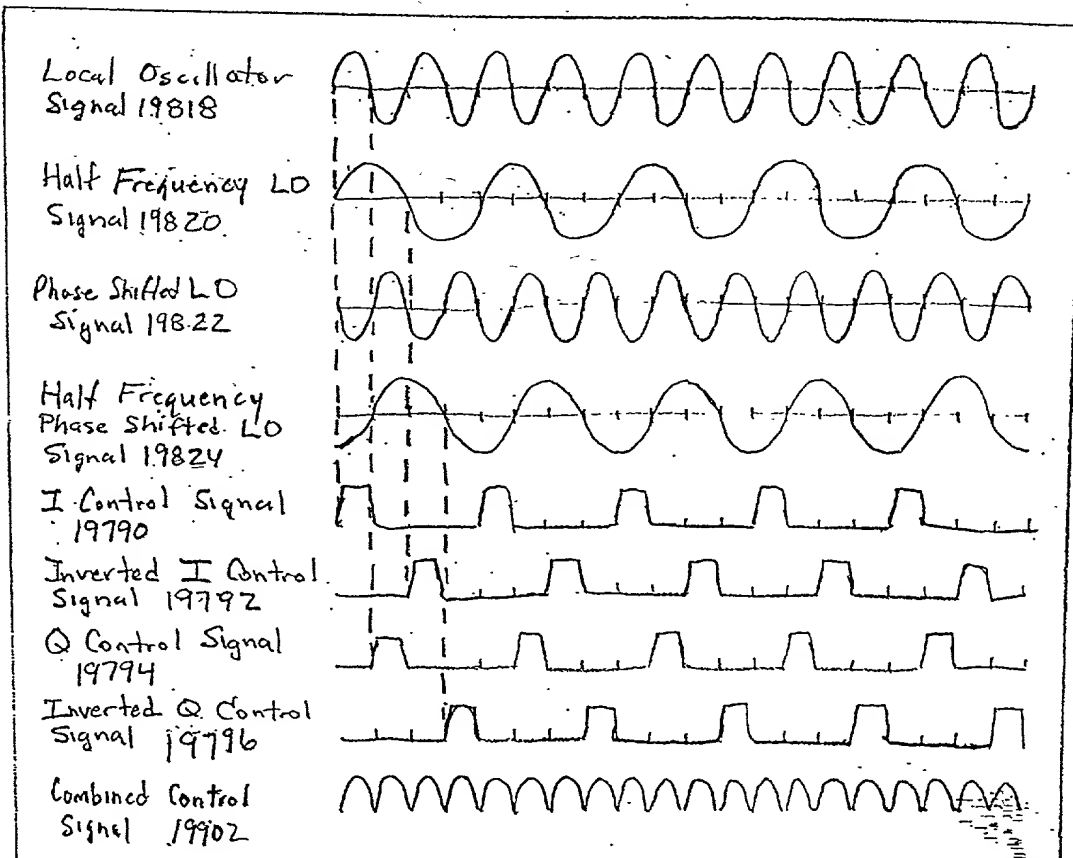 Local Oscillator
Signal 19818
Half Frequency LO
Signal 19820
Phase Shifted LO
Signal 19822
Half Frequency
Phase Shifted LO
Signal 19824
I Control Signal
19790
Inverted I Control
Signal 19792
Q Control Signal
19794
Inverted Q Control
Signal 19796
Combined Control
Signal 19902